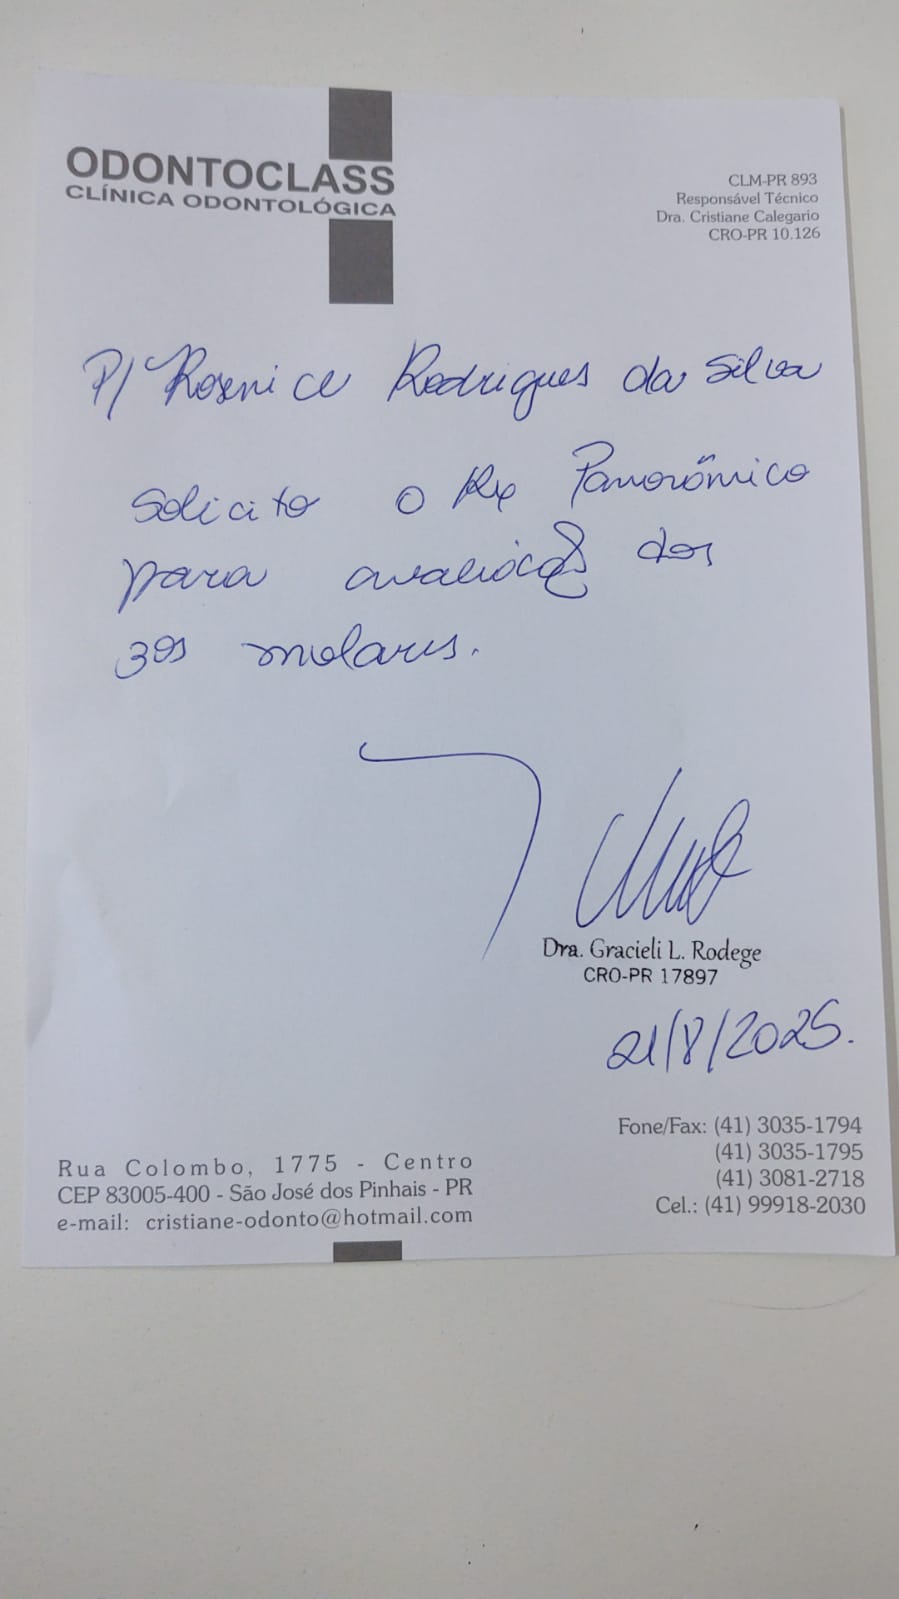 ODONTOCLASS
CLÍNICA ODONTOLÓGICA
CLM-PR 893
Responsável Técnico
Dra. Cristiane Calegario
CRO-PR 10.126
P/ Rosenice Rodrigues da Silva
Solicito o Rx Panorâmico
para avaliação dos
3os molares.
Dra. Gracieli L. Rodege
CRO-PR 17897
21/8/2025.
Rua Colombo, 1775 - Centro
CEP 83005-400 - São José dos Pinhais - PR
e-mail: cristiane-odonto@hotmail.com
Fone/Fax: (41) 3035-1794
(41) 3035-1795
(41) 3081-2718
Cel.: (41) 99918-2030